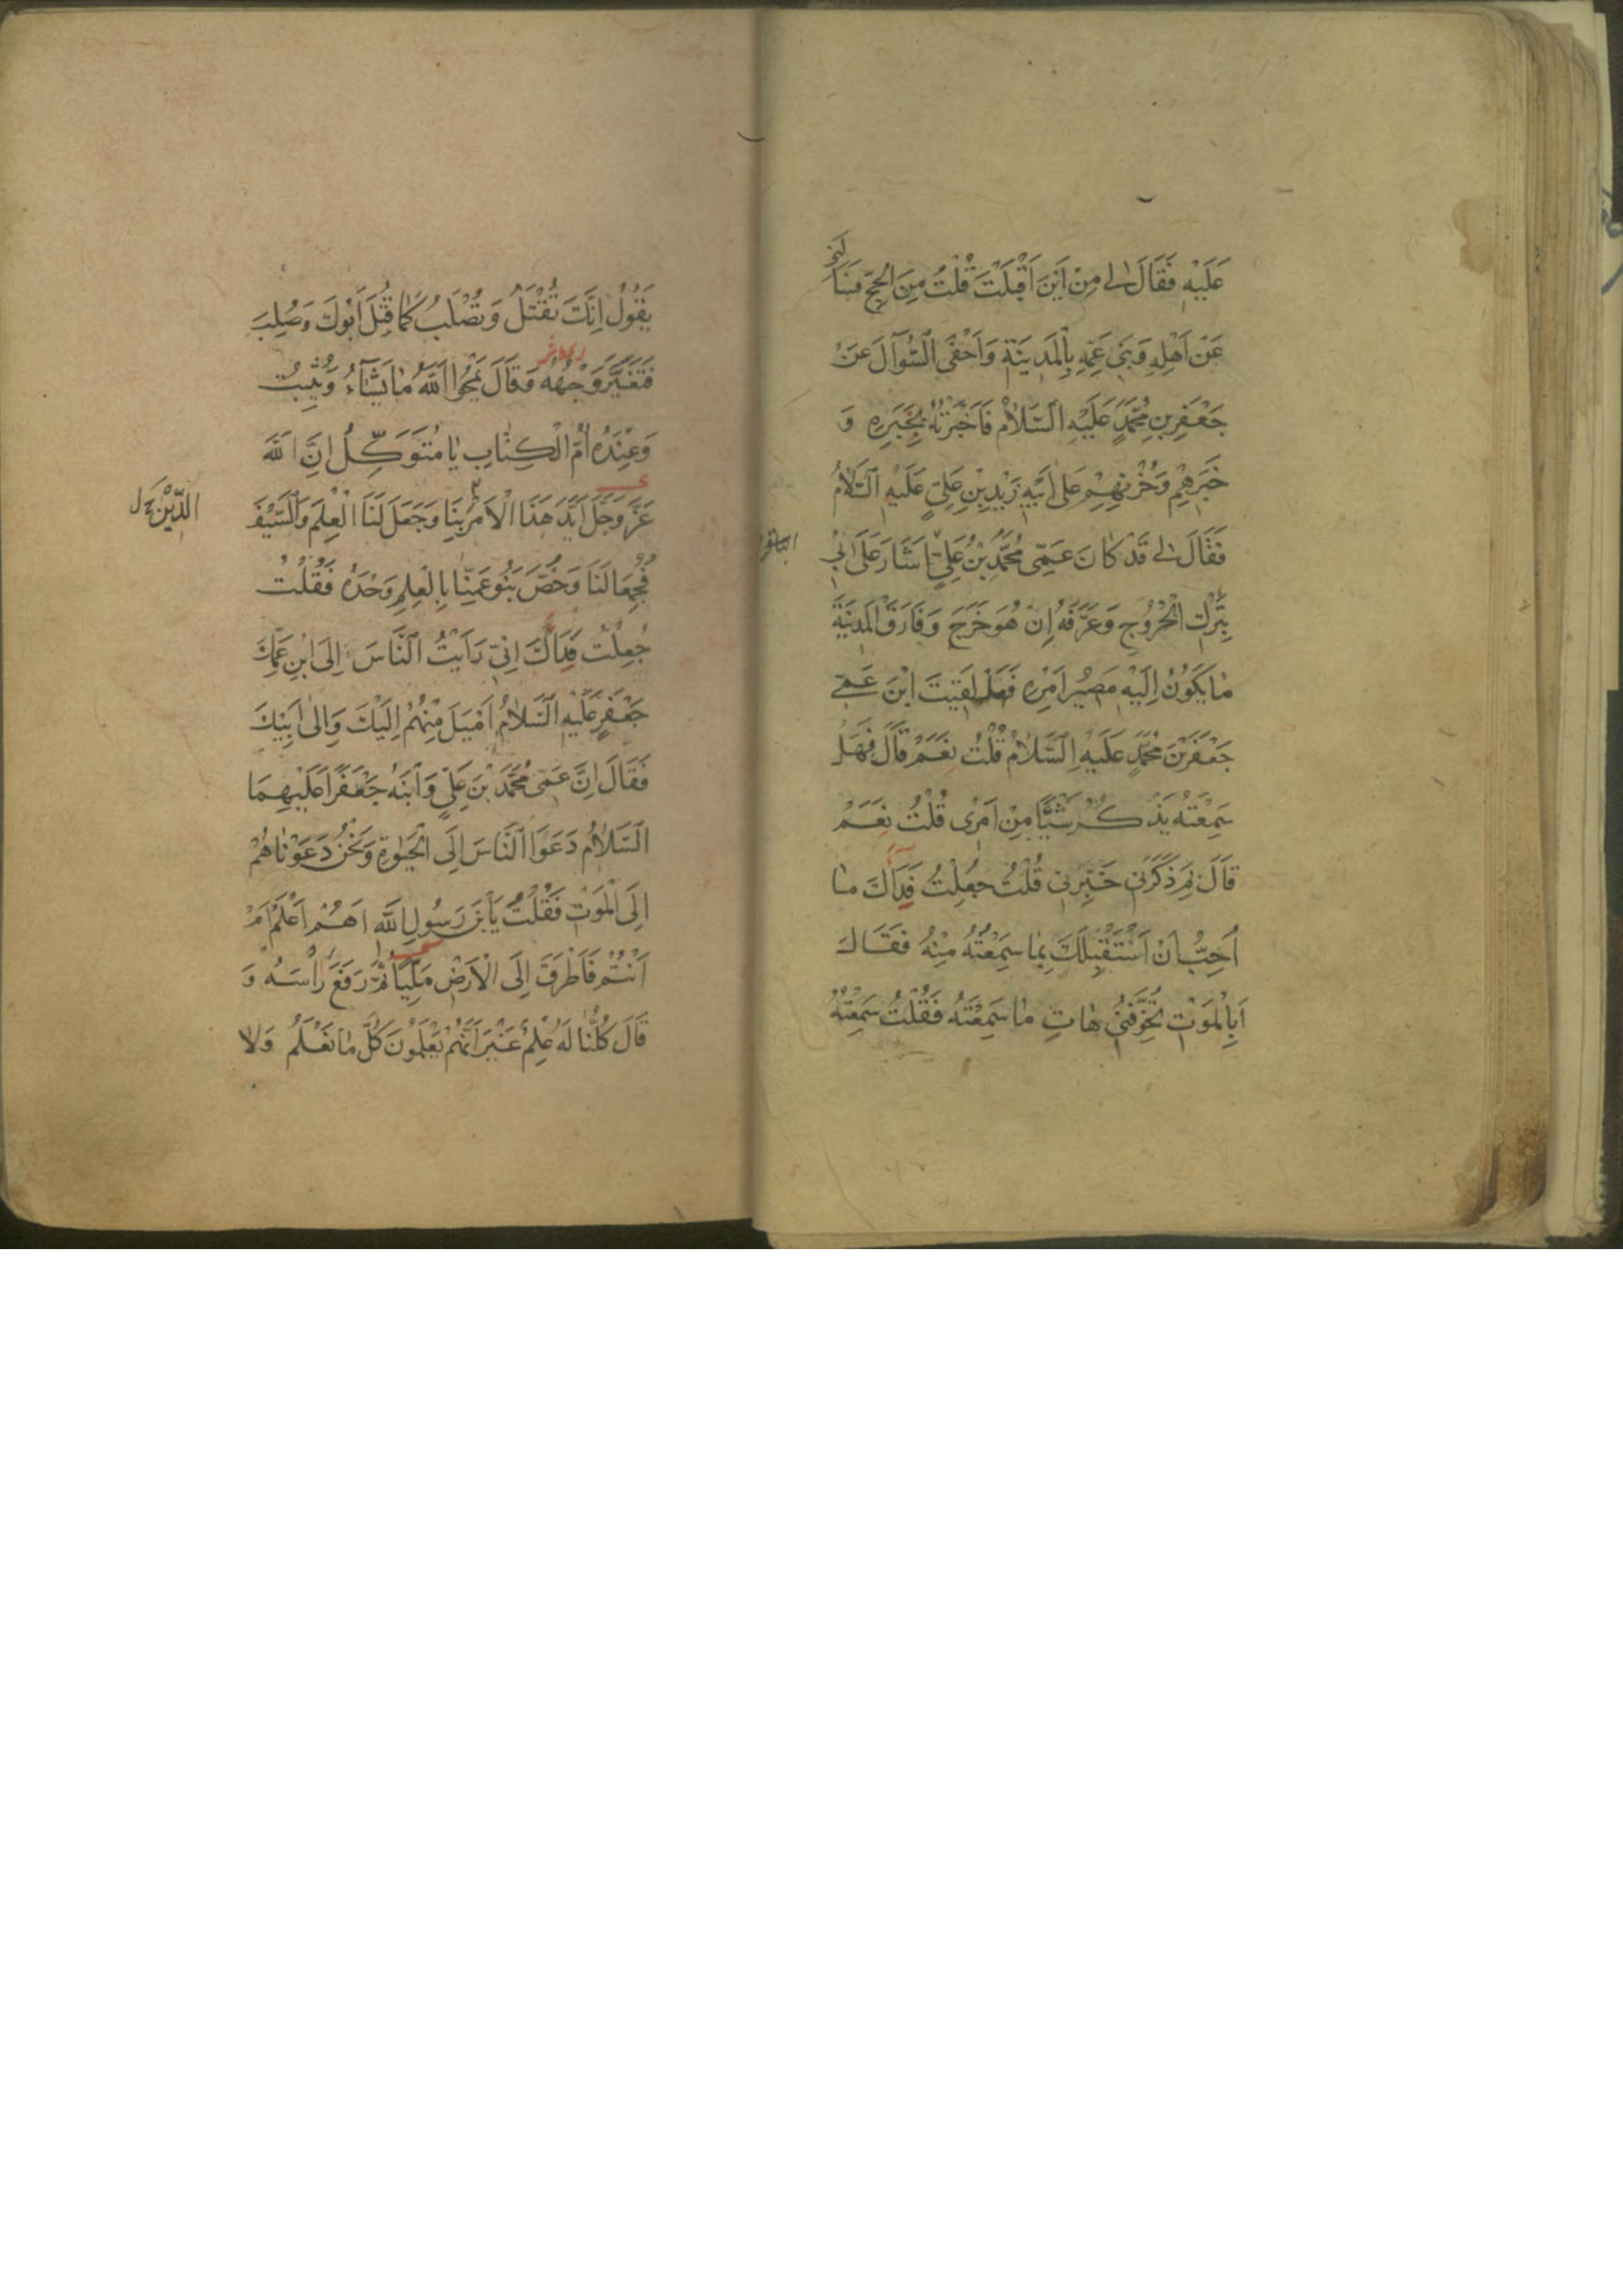 عَلَيْهِ فَقَالَ لِي مِنْ اَيْنَ اَقْبَلْتَ قُلْتُ مِنَ الْحَجِّ فَسَاَلَنِي
عَنْ اَهْلِهِ وَبَنِي عَمِّهِ بِالْمَدِينَةِ وَاَحْفَى السُّؤَالَ عَنْ
جَعْفَرِ بْنِ مُحَمَّدٍ عَلَيْهِ السَّلَامُ فَاَخْبَرْتُهُ بِخَبَرِهِ وَ
خَبَرِهِمْ وَحُزْنِهِمْ عَلَى اَبِيهِ زَيْدِ بْنِ عَلِيٍّ عَلَيْهِ السَّلَامُ
فَقَالَ لِي قَدْ كَانَ عَمِّي مُحَمَّدُ بْنُ عَلِيٍّ اَشَارَ عَلَى اَبِي
الباقر
بِتَرْكِ الْخُرُوجِ وَعَرَّفَهُ اِنْ هُوَ خَرَجَ وَفَارَقَ الْمَدِينَةَ
مَا يَكُونُ اِلَيْهِ مَصِيرُ اَمْرِهِ فَهَلْ لَقِيتَ ابْنَ عَمِّي
جَعْفَرَ بْنَ مُحَمَّدٍ عَلَيْهِ السَّلَامُ قُلْتُ نَعَمْ قَالَ فَهَلْ
سَمِعْتَهُ يَذْكُرُ شَيْئًا مِنْ اَمْرِي قُلْتُ نَعَمْ
قَالَ بِمَ ذَكَرَنِي خَبِّرْنِي قُلْتُ جُعِلْتُ فِدَاكَ مَا
اُحِبُّ اَنْ اَسْتَقْبِلَكَ بِمَا سَمِعْتُهُ مِنْهُ فَقَالَ
اَبِالْمَوْتِ تُخَوِّفُنِي هَاتِ مَا سَمِعْتَهُ فَقُلْتُ سَمِعْتُهُ
يَقُولُ اِنَّكَ تُقْتَلُ وَتُصْلَبُ كَمَا قُتِلَ اَبُوكَ وَصُلِبَ
فَتَغَيَّرَ وَجْهُهُ وَقَالَ يَمْحُوا اللّٰهُ مَا يَشَاءُ وَيُثْبِتُ
وَعِنْدَهُ اُمُّ الْكِتَابِ يَا مُتَوَكِّلُ اِنَّ اللّٰهَ
عَزَّ وَجَلَّ اَيَّدَ هَذَا الْاَمْرَ بِنَا وَجَعَلَ لَنَا الْعِلْمَ وَالسَّيْفَ
الدِّيْنَ
فَجُمِعَا لَنَا وَخُصَّ بَنُو عَمِّنَا بِالْعِلْمِ وَحْدَهُ فَقُلْتُ
جُعِلْتُ فِدَاكَ اِنِّي رَاَيْتُ النَّاسَ اِلَى ابْنِ عَمِّكَ
جَعْفَرٍ عَلَيْهِ السَّلَامُ اَمْيَلَ مِنْهُمْ اِلَيْكَ وَاِلَى اَبِيكَ
فَقَالَ اِنَّ عَمِّي مُحَمَّدَ بْنَ عَلِيٍّ وَابْنَهُ جَعْفَرًا عَلَيْهِمَا
السَّلَامُ دَعَوَا النَّاسَ اِلَى الْحَيٰوةِ وَنَحْنُ دَعَوْنَاهُمْ
اِلَى الْمَوْتِ فَقُلْتُ يَابْنَ رَسُولِ اللّٰهِ اَهُمْ اَعْلَمُ اَمْ
اَنْتُمْ فَاَطْرَقَ اِلَى الْاَرْضِ مَلِيًّا ثُمَّ رَفَعَ رَأْسَهُ وَ
قَالَ كُلُّنَا لَهُ عِلْمٌ غَيْرَ اَنَّهُمْ يَعْلَمُونَ كُلَّ مَا نَعْلَمُ وَلَا